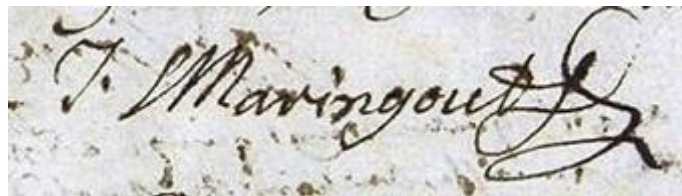 J. Maringout